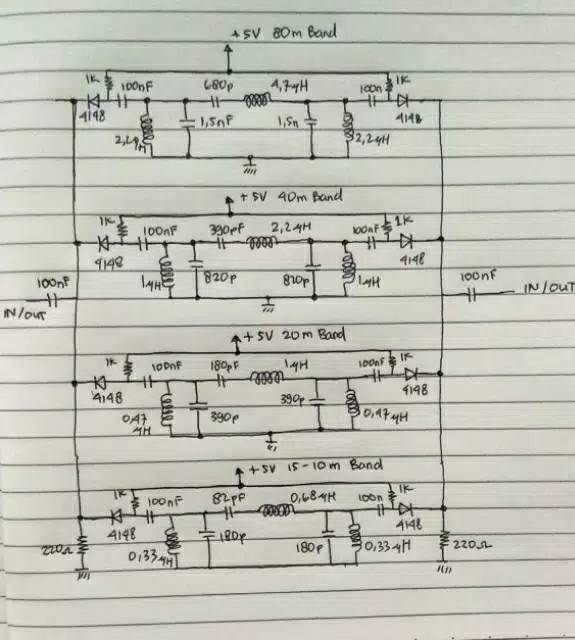 +5V 80m Band
1K 100nF 680p 4,7µH 100n 1K
4148 2,2µH 1,5nF 1,5n 2,2µH 4148
+5V 40m Band
1K 100nF 390pF 2,2µH 100nF 1K
4148 1µH 820p 820p 1µH 4148
100nF 100nF
IN/OUT IN/OUT
+5V 20m Band
1K 100nF 180pF 1µH 100nF 1K
4148 0,47µH 390p 390p 0,47µH 4148
+5V 15-10m Band
1K 100nF 82pF 0,68µH 100n 1K
4148 0,33µH 180p 180p 0,33µH 4148
220Ω 220Ω